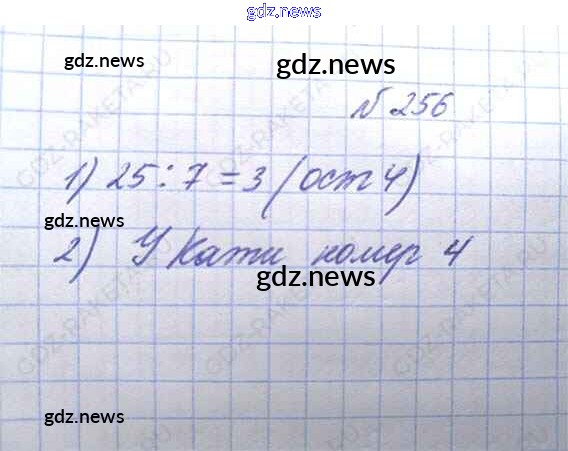 gdz.news
gdz.news gdz.news
№ 256
1) 25 : 7 = 3 (ост 4)
gdz.news
2) У Кати номер 4
gdz.news
gdz.news
GDZ-RAKETA.RU